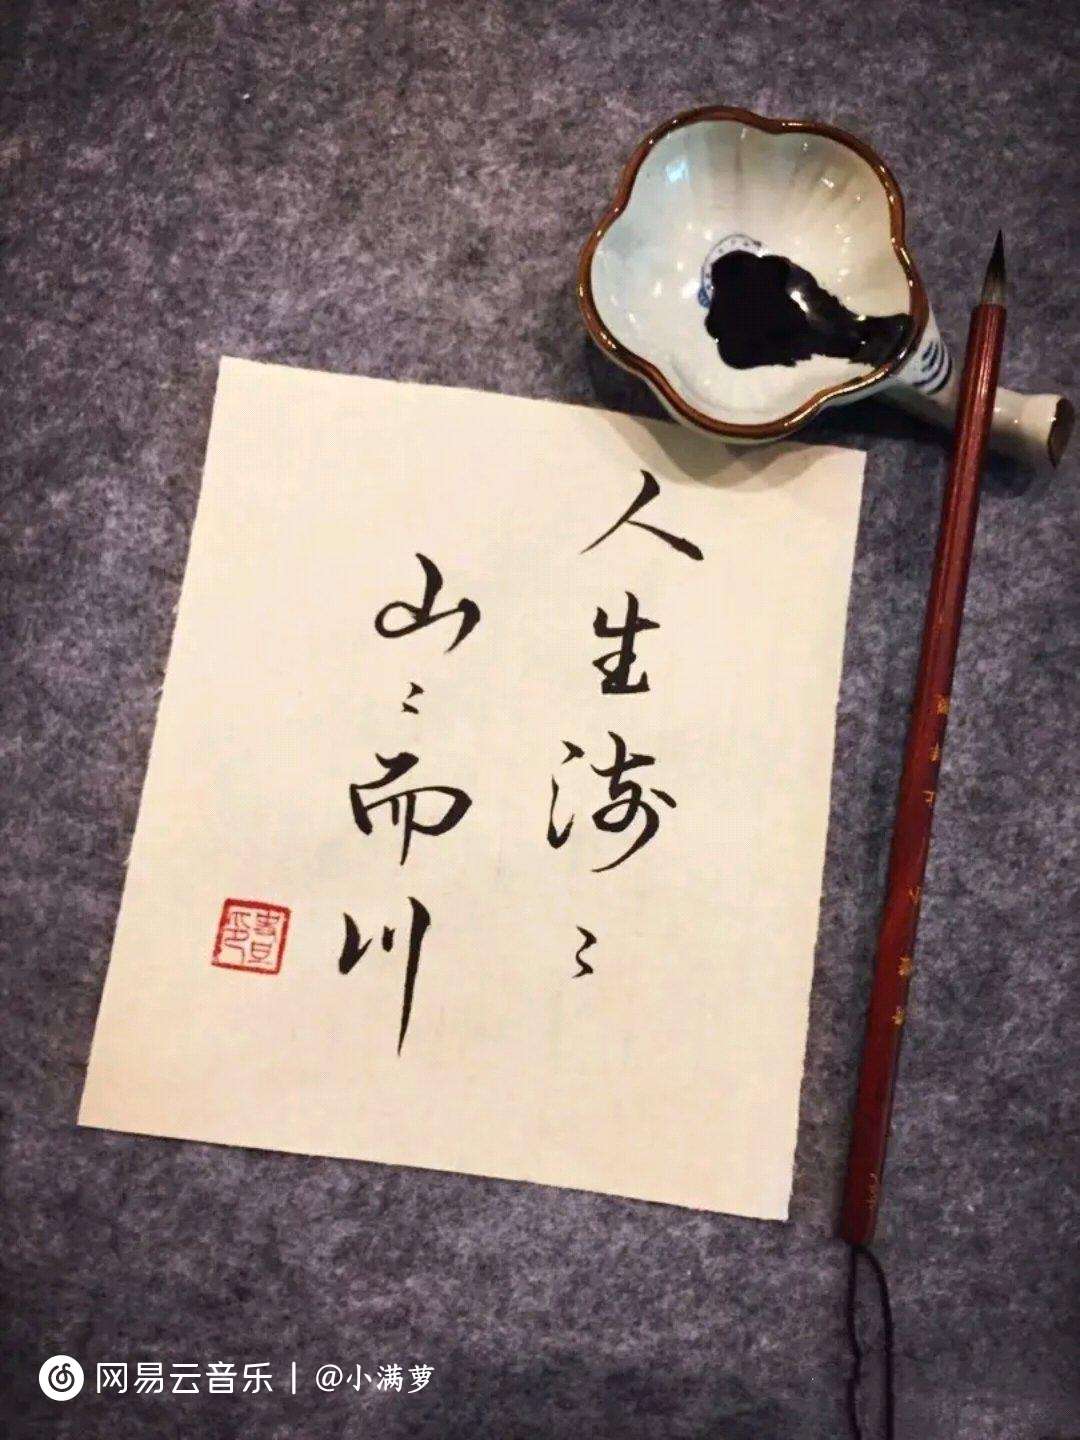 人生海〻
山〻而川
网易云音乐 | @小满萝